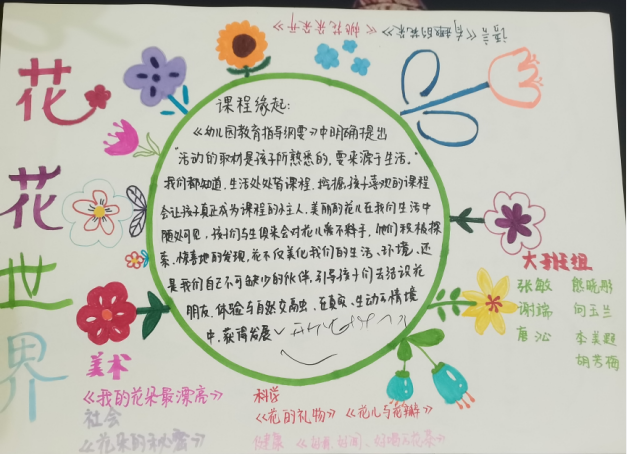 花花世界
语言《有趣的花朵》《桃花朵朵开》
课程缘起:
《幼儿园教育指导纲要》中明确提出
"活动的取材是孩子所熟悉的,要来源于生活。"
我们都知道,生活处处皆课程,挖掘孩子喜欢的课程
会让孩子真正成为课程的主人,美丽的花儿在我们生活中
随处可见,孩子们与生俱来会对花儿爱不释手,他们积极探
索、惊喜地发现,花不仅美化我们的生活、环境,还
是我们自己不可缺少的伙伴,引导孩子们去结识花
朋友,体验与自然交融,在真实、生动的情境
中,获得发展。
大班组
张敏 熊晓彤
谢瑞 向玉兰
唐沁 李美题
胡芳梅
美术
《我的花朵最漂亮》
社会
《花朵的秘密》
科学
《花的礼物》《花儿与花瓣》
健康